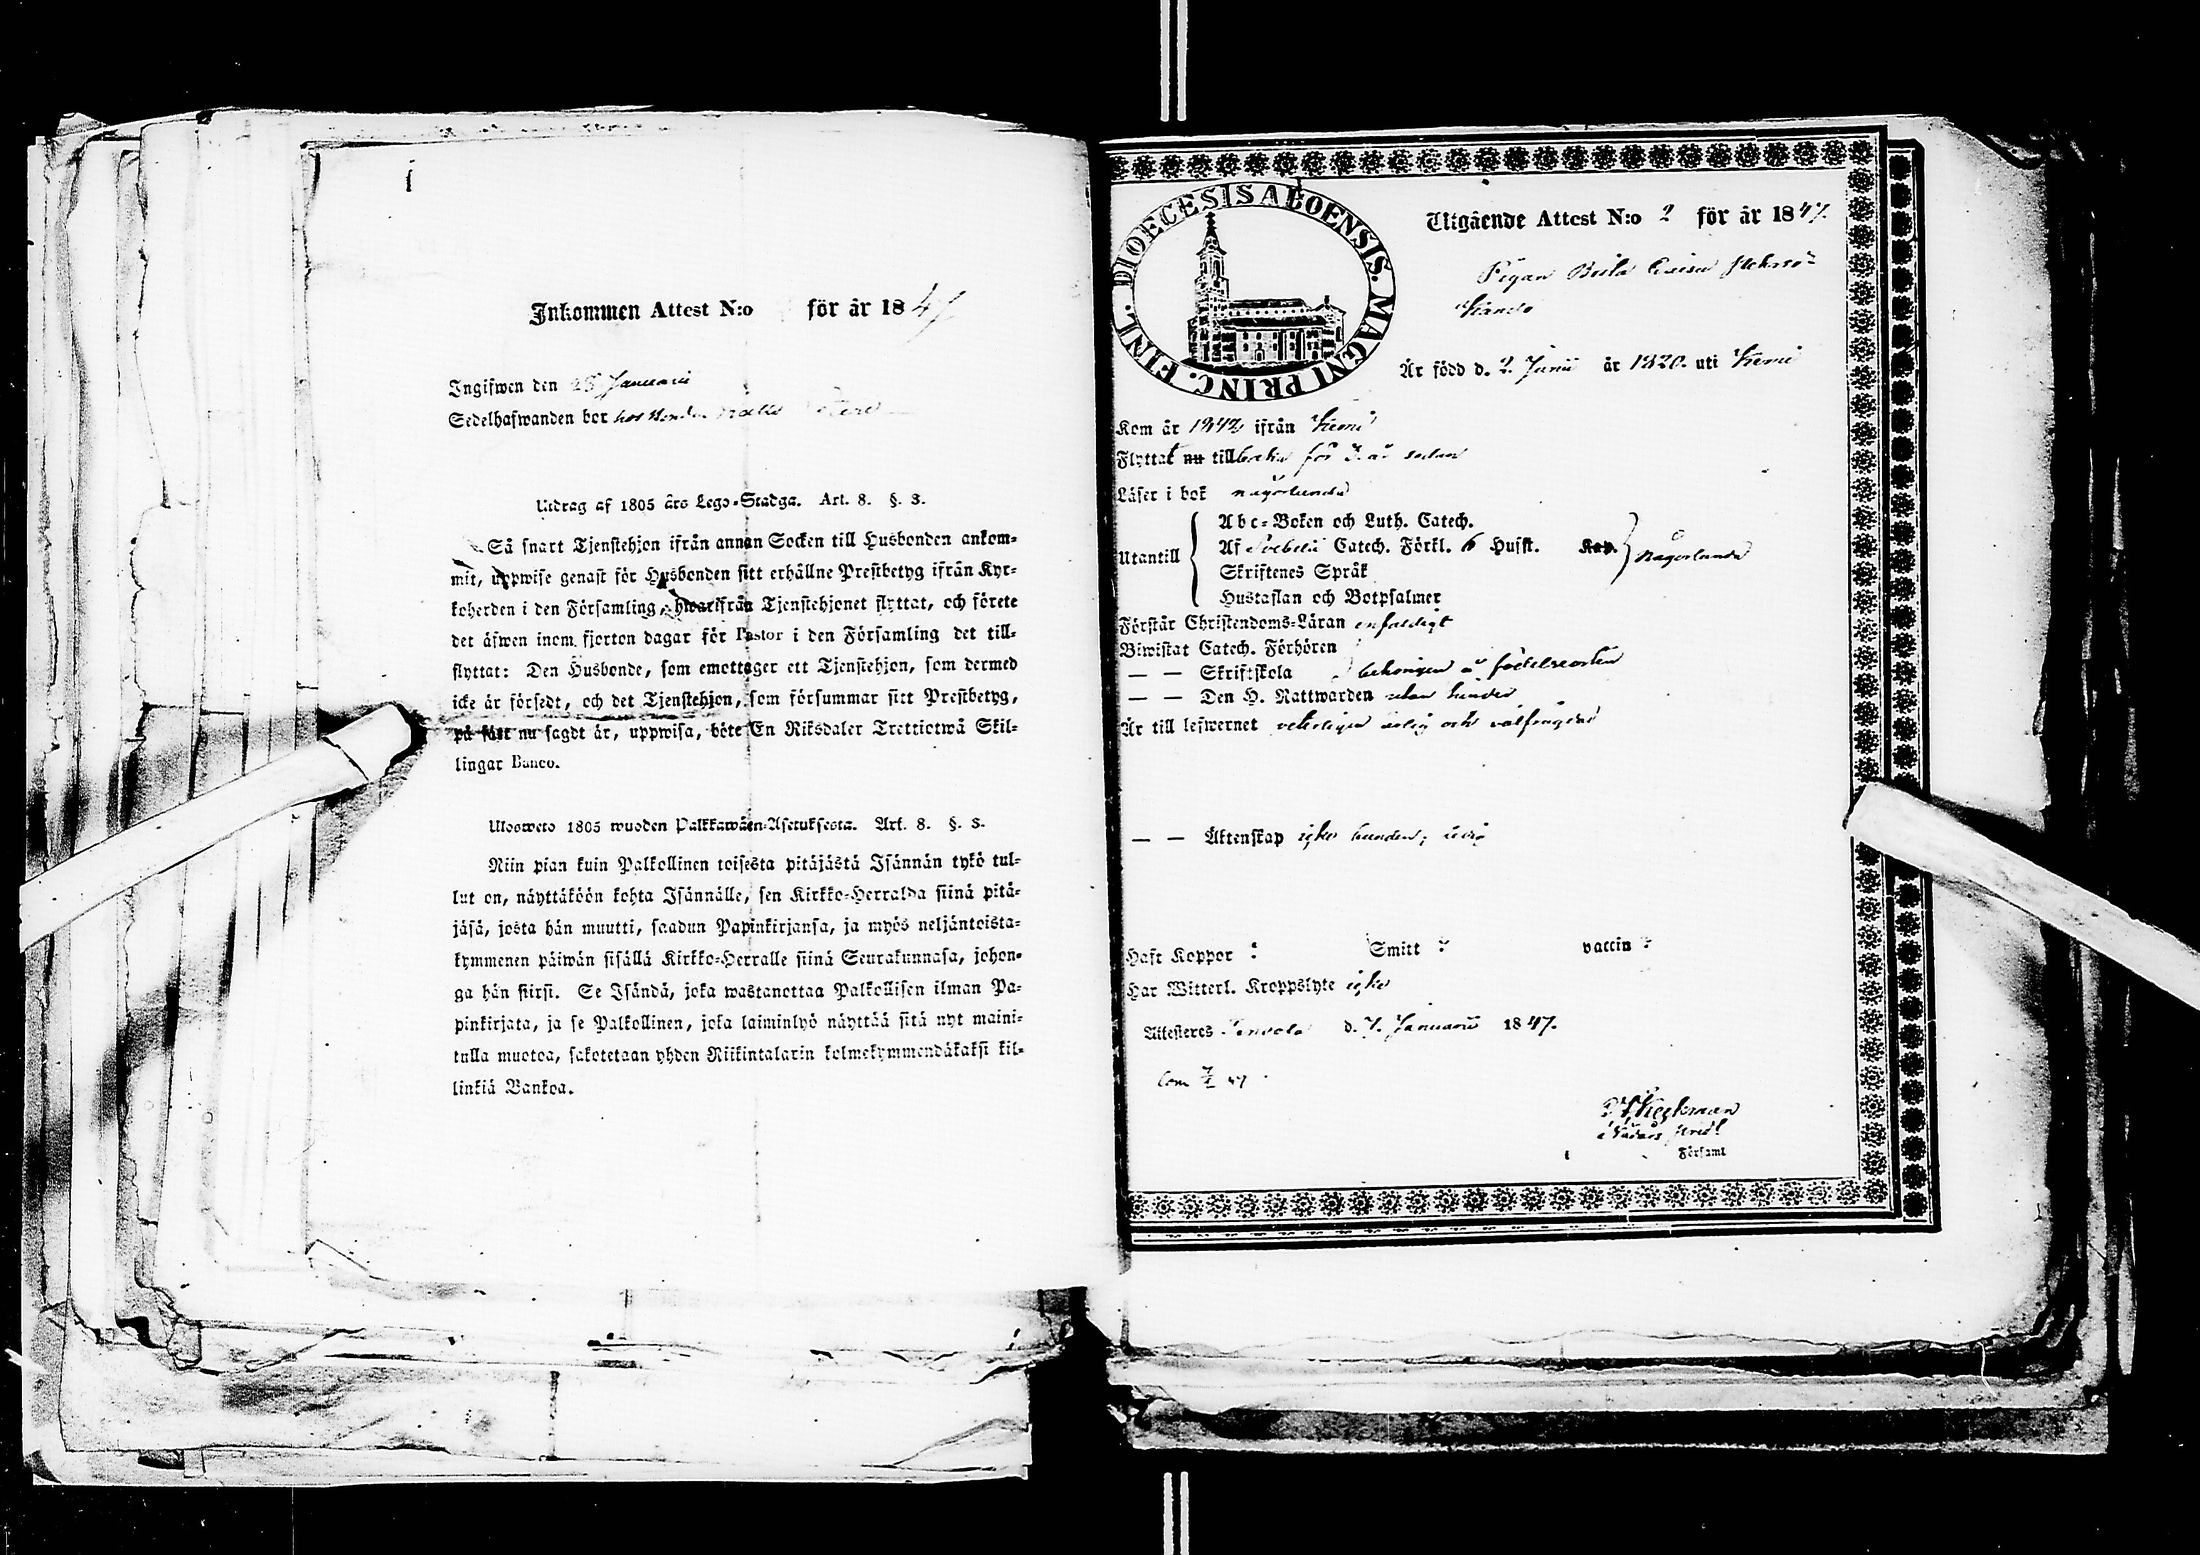 i
Inkommen Attest N:o för år 1847
Ingifwen den 28 Januarii
Sedelhafwanden bor hos
Utdrag af 1805 års Lego-Stadga. Art. 8. §. 3.
Så snart Tjenstehjon ifrån annan Socken till Husbonden ankom-
mit, uppwise genast för Husbonden sitt erhållne Prestbetyg ifrån Kyr-
koherden i den Församling, hwarifrån Tjenstehjonet flyttat, och förete
det äfwen inom fjorton dagar för Pastor i den Församling det till-
flyttat: Den Husbonde, som emottager ett Tjenstehjon, som dermed
icke är försedt, och det Tjenstehjon, som försummar sitt Prestbetyg,
på sätt nu sagdt är, uppwisa, böte En Riksdaler Trettiotwå Skil-
lingar Banco.
Ulosweto 1805 wuoden Palkkawäen-Asetuksesta. Art. 8. §. 3.
Niin pian kuin Palkollinen toisesta pitäjästä Isännän tykö tul-
lut on, näyttäköön kohta Isännälle, sen Kirkko-Herralda siinä pitä-
jäsä, josta hän muutti, saadun Papinkirjansa, ja myös neljäntoista-
kymmenen päiwän sisällä Kirkko-Herralle siinä Seurakunnasa, johon-
ga hän siirsi. Se Isändä, joka wastanottaa Palkollisen ilman Pa-
pinkirjata, ja se Palkollinen, joka laiminlyö näyttää sitä nyt maini-
tulla muotoa, sakotetaan yhden Riikintalarin kolmekymmendäkaksi kil-
linkiä Bankoa.
DIOECESIS ABOENSIS. MAGNI PRINC. FINL.
Utgående Attest N:o 2 för år 1847.
Pigan Brita Caisa
Är född d. 2 Junii år 1820. uti Kemi
Kom år 1842 ifrån Kemi
Flyttat nu tillbaka för 3 år sedan
Läser i bok någorlunda
Utantill
Abc-Boken och Luth. Catech.
Af Svebelii Catech. Förkl. 6 Husst. Kap. någorlunda
Skriftenes Språk
Hustaflan och Botpsalmer
Förstår Christendoms-Läran enfaldigt
Biwistat Catech. Förhören
— — Skriftskola behörigen å födelseorten
— — Den H. Nattwarden utan hinder
Är till lefwernet veterligen ärlig och välfrägdad
— — Äktenskap icke bunden, ledig
Haft Koppor ? Smitt ? vaccin ?
Har Witterl. Kroppslyte icke
Attesteres Tervola d. 7. Januarii 1847.
Församl